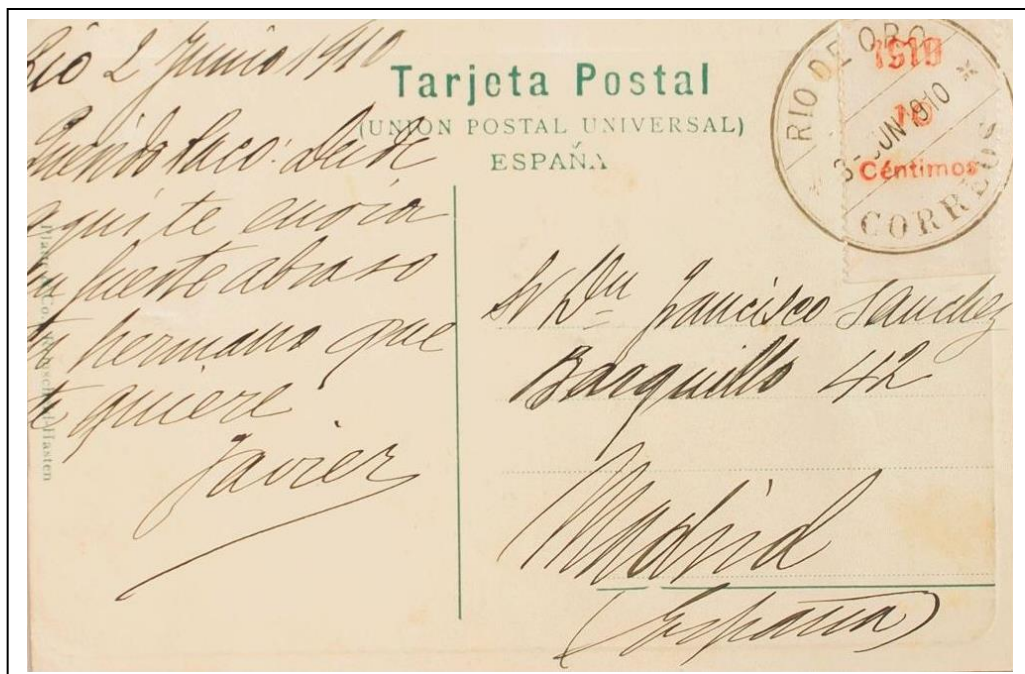 Rio 2 Junio 1910
Querido Paco: Desde
aquí te envia
un fuerte abraso
tu hermano que
te quiere
Javier
Tarjeta Postal
(UNIÓN POSTAL UNIVERSAL)
ESPAÑA
RIO DE ORO
1910
10
Céntimos
3 - JUN 1910
CORREOS
Sr Dn Francisco Sanchez
Barquillo 42
Madrid
(España)